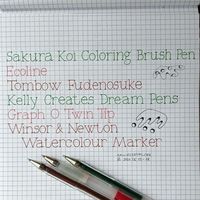 Sakura Koi Coloring Brush Pen
Ecoline
Tombow Fudenosuke
Kelly Creates Dream Pens
Graph O Twin Tip
Winsor & Newton
Watercolour Marker